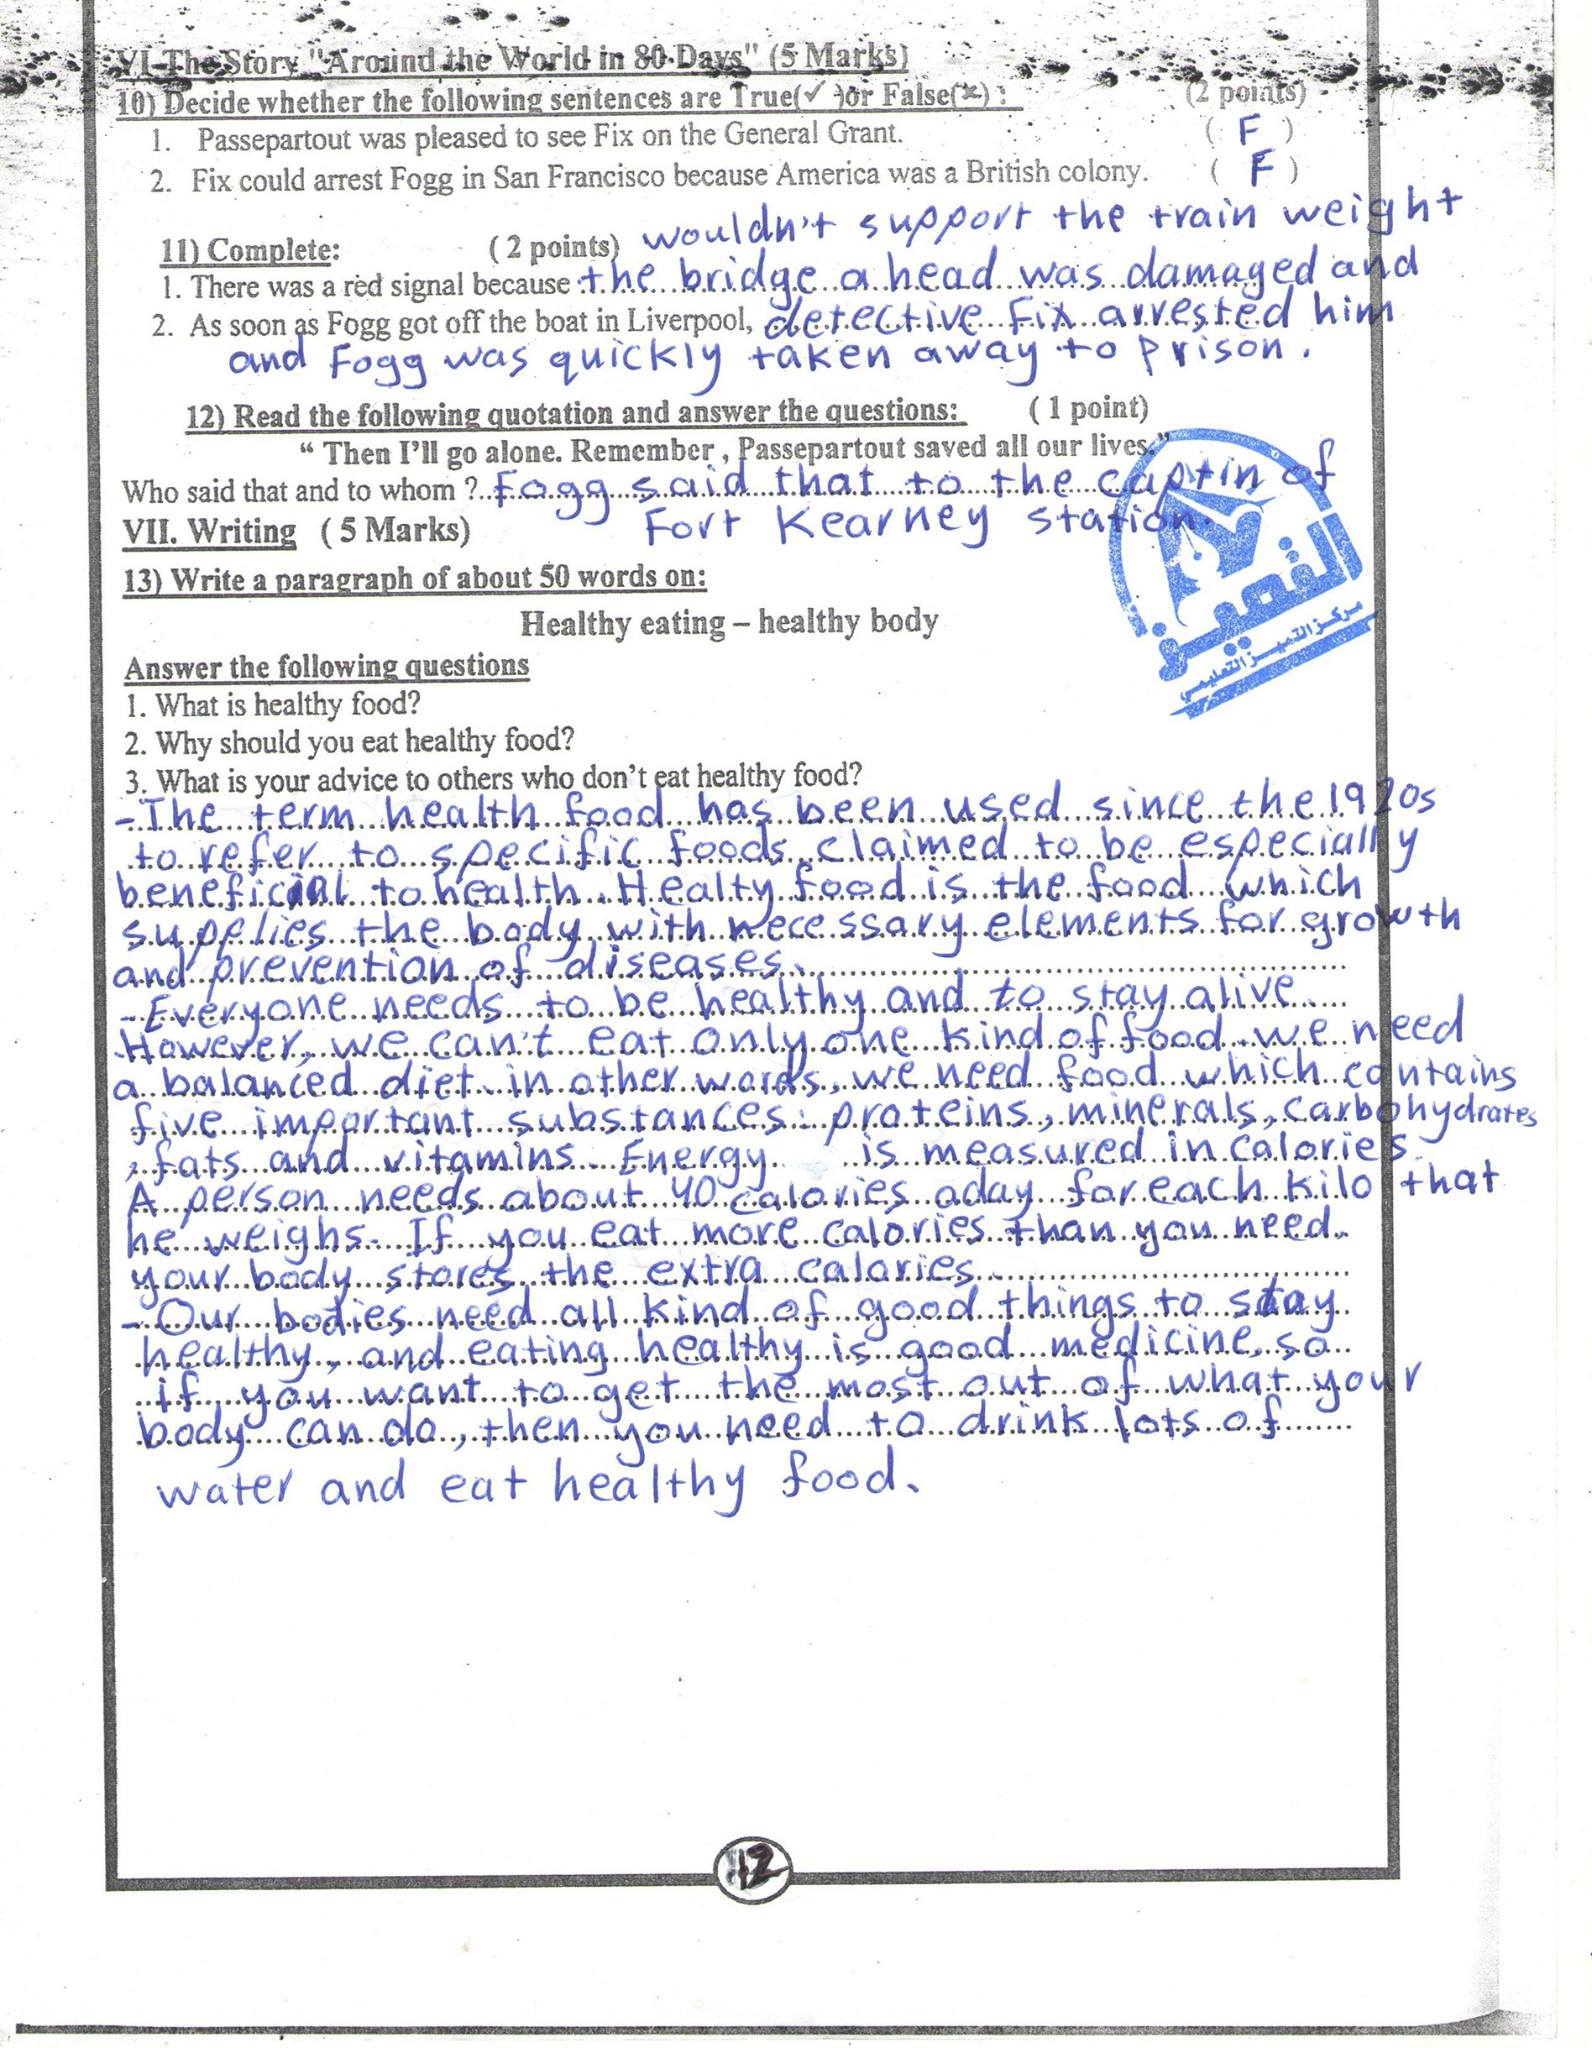 VI-The Story "Around the World in 80 Days" (5 Marks)
10) Decide whether the following sentences are True(✓ )or False(×) : (2 points)
1. Passepartout was pleased to see Fix on the General Grant. ( F )
2. Fix could arrest Fogg in San Francisco because America was a British colony. ( F )
11) Complete: ( 2 points) wouldn't support the train weight
1. There was a red signal because the bridge a head was damaged and
2. As soon as Fogg got off the boat in Liverpool, detective Fix arrested him
and Fogg was quickly taken away to prison.
12) Read the following quotation and answer the questions: ( 1 point)
“ Then I’ll go alone. Remember , Passepartout saved all our lives.”
Who said that and to whom ? Fogg said that to the captin of
VII. Writing ( 5 Marks) Fort Kearney station.
13) Write a paragraph of about 50 words on:
Healthy eating – healthy body
التميز
مركز التميز التعليمي
Answer the following questions
1. What is healthy food?
2. Why should you eat healthy food?
3. What is your advice to others who don’t eat healthy food?
- The term health food has been used since the 1920s
to refer to specific foods claimed to be especially
beneficial to health. Healty food is the food which
supplies the body with necessary elements for growth
and prevention of diseases.
- Everyone needs to be healthy and to stay alive
However, we can't eat only one kind of food. we need
a balanced diet. in other words, we need food which contains
five important substances: proteins, minerals, carbohydrates
, fats and vitamins. Energy is measured in calories.
A person needs about 40 calories aday for each kilo that
he weighs. If you eat more calories than you need.
your body stores the extra calories
- Our bodies need all kind of good things to stay
healthy, and eating healthy is good medicine, so
if you want to get the most out of what your
body can do, then you need to drink lots of
water and eat healthy food.
12